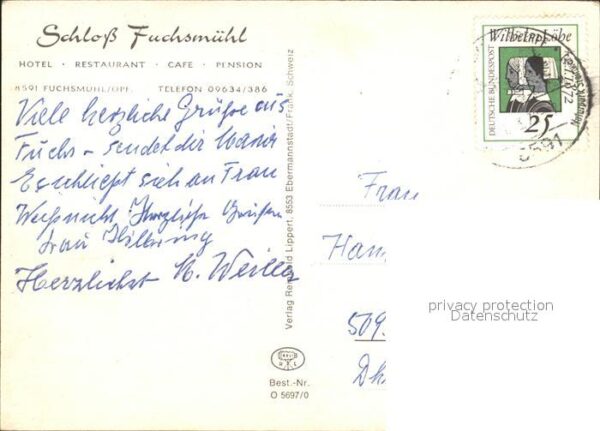 Schloß Fuchsmühl
HOTEL · RESTAURANT · CAFE · PENSION
8591 FUCHSMÜHL/OPF. TELEFON 09634/386
Viele herzliche Grüße aus
Fuchs – sendet dir Maria
Es schließt sich an Frau
Herzliche Grüßen
Frau
Herzlichst M.
Verlag Reinhold Lippert, 8553 Ebermannstadt/Fränk. Schweiz
Best.-Nr.
O 5697/0
Wilhelm Löhe
DEUTSCHE BUNDESPOST
1872
25
8591
Frau
Han
509
privacy protection
Datenschutz